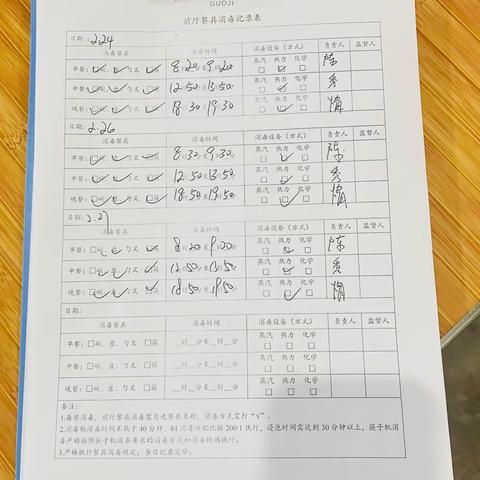 GUOJI
前厅餐具消毒记录表
日期: 2.24
消毒餐具 消毒时间 消毒设备（方式） 负责人 监督人
早餐: □碗、盘、勺叉 □筷 8时20分至9时20分 蒸汽 热力 化学 陈
中餐: □碗、盘、勺叉 □筷 12时50分至13时50分 蒸汽 热力 化学 秀
晚餐: □碗、盘、勺叉 □筷 18时30分至19时30分 蒸汽 热力 化学
日期: 2.26
消毒餐具 消毒时间 消毒设备（方式） 负责人 监督人
早餐: □碗、盘、勺叉 □筷 8时30分至9时30分 蒸汽 热力 化学 陈
中餐: □碗、盘、勺叉 □筷 12时50分至13时50分 蒸汽 热力 化学 秀
晚餐: □碗、盘、勺叉 □筷 18时50分至19时50分 蒸汽 热力 化学
日期: 2.27
消毒餐具 消毒时间 消毒设备（方式） 负责人 监督人
早餐: □碗、盘、勺叉 □筷 8时20分至9时20分 蒸汽 热力 化学 陈
中餐: □碗、盘、勺叉 □筷 12时50分至13时50分 蒸汽 热力 化学 秀
晚餐: □碗、盘、勺叉 □筷 18时50分至19时50分 蒸汽 热力 化学
日期:
消毒餐具 消毒时间 消毒设备（方式） 负责人 监督人
早餐: □碗、盘、勺叉 □筷 __时__分至__时__分 蒸汽 热力 化学
中餐: □碗、盘、勺叉 □筷 __时__分至__时__分 蒸汽 热力 化学
晚餐: □碗、盘、勺叉 □筷 __时__分至__时__分 蒸汽 热力 化学
备注:
1.每餐消毒，前厅餐具消毒需勾选餐具名称，消毒方式需打“√”。
2.消毒柜消毒时间不低于40分钟，84消毒液配比按200:1执行，浸泡时间需达到30分钟以上，筷子机消
毒严格按照筷子机设备要求的消毒方式和消毒时间执行。
3.严格执行餐具消毒规定，当日记录完毕。